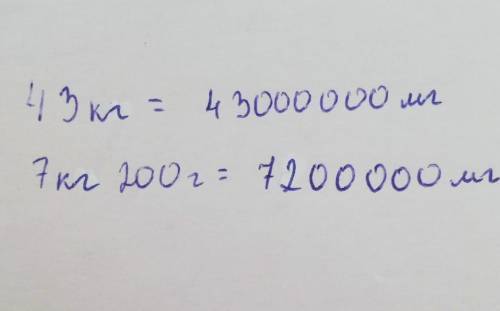 43 кг = 43000000 мг
7 кг 200 г = 7200000 мг